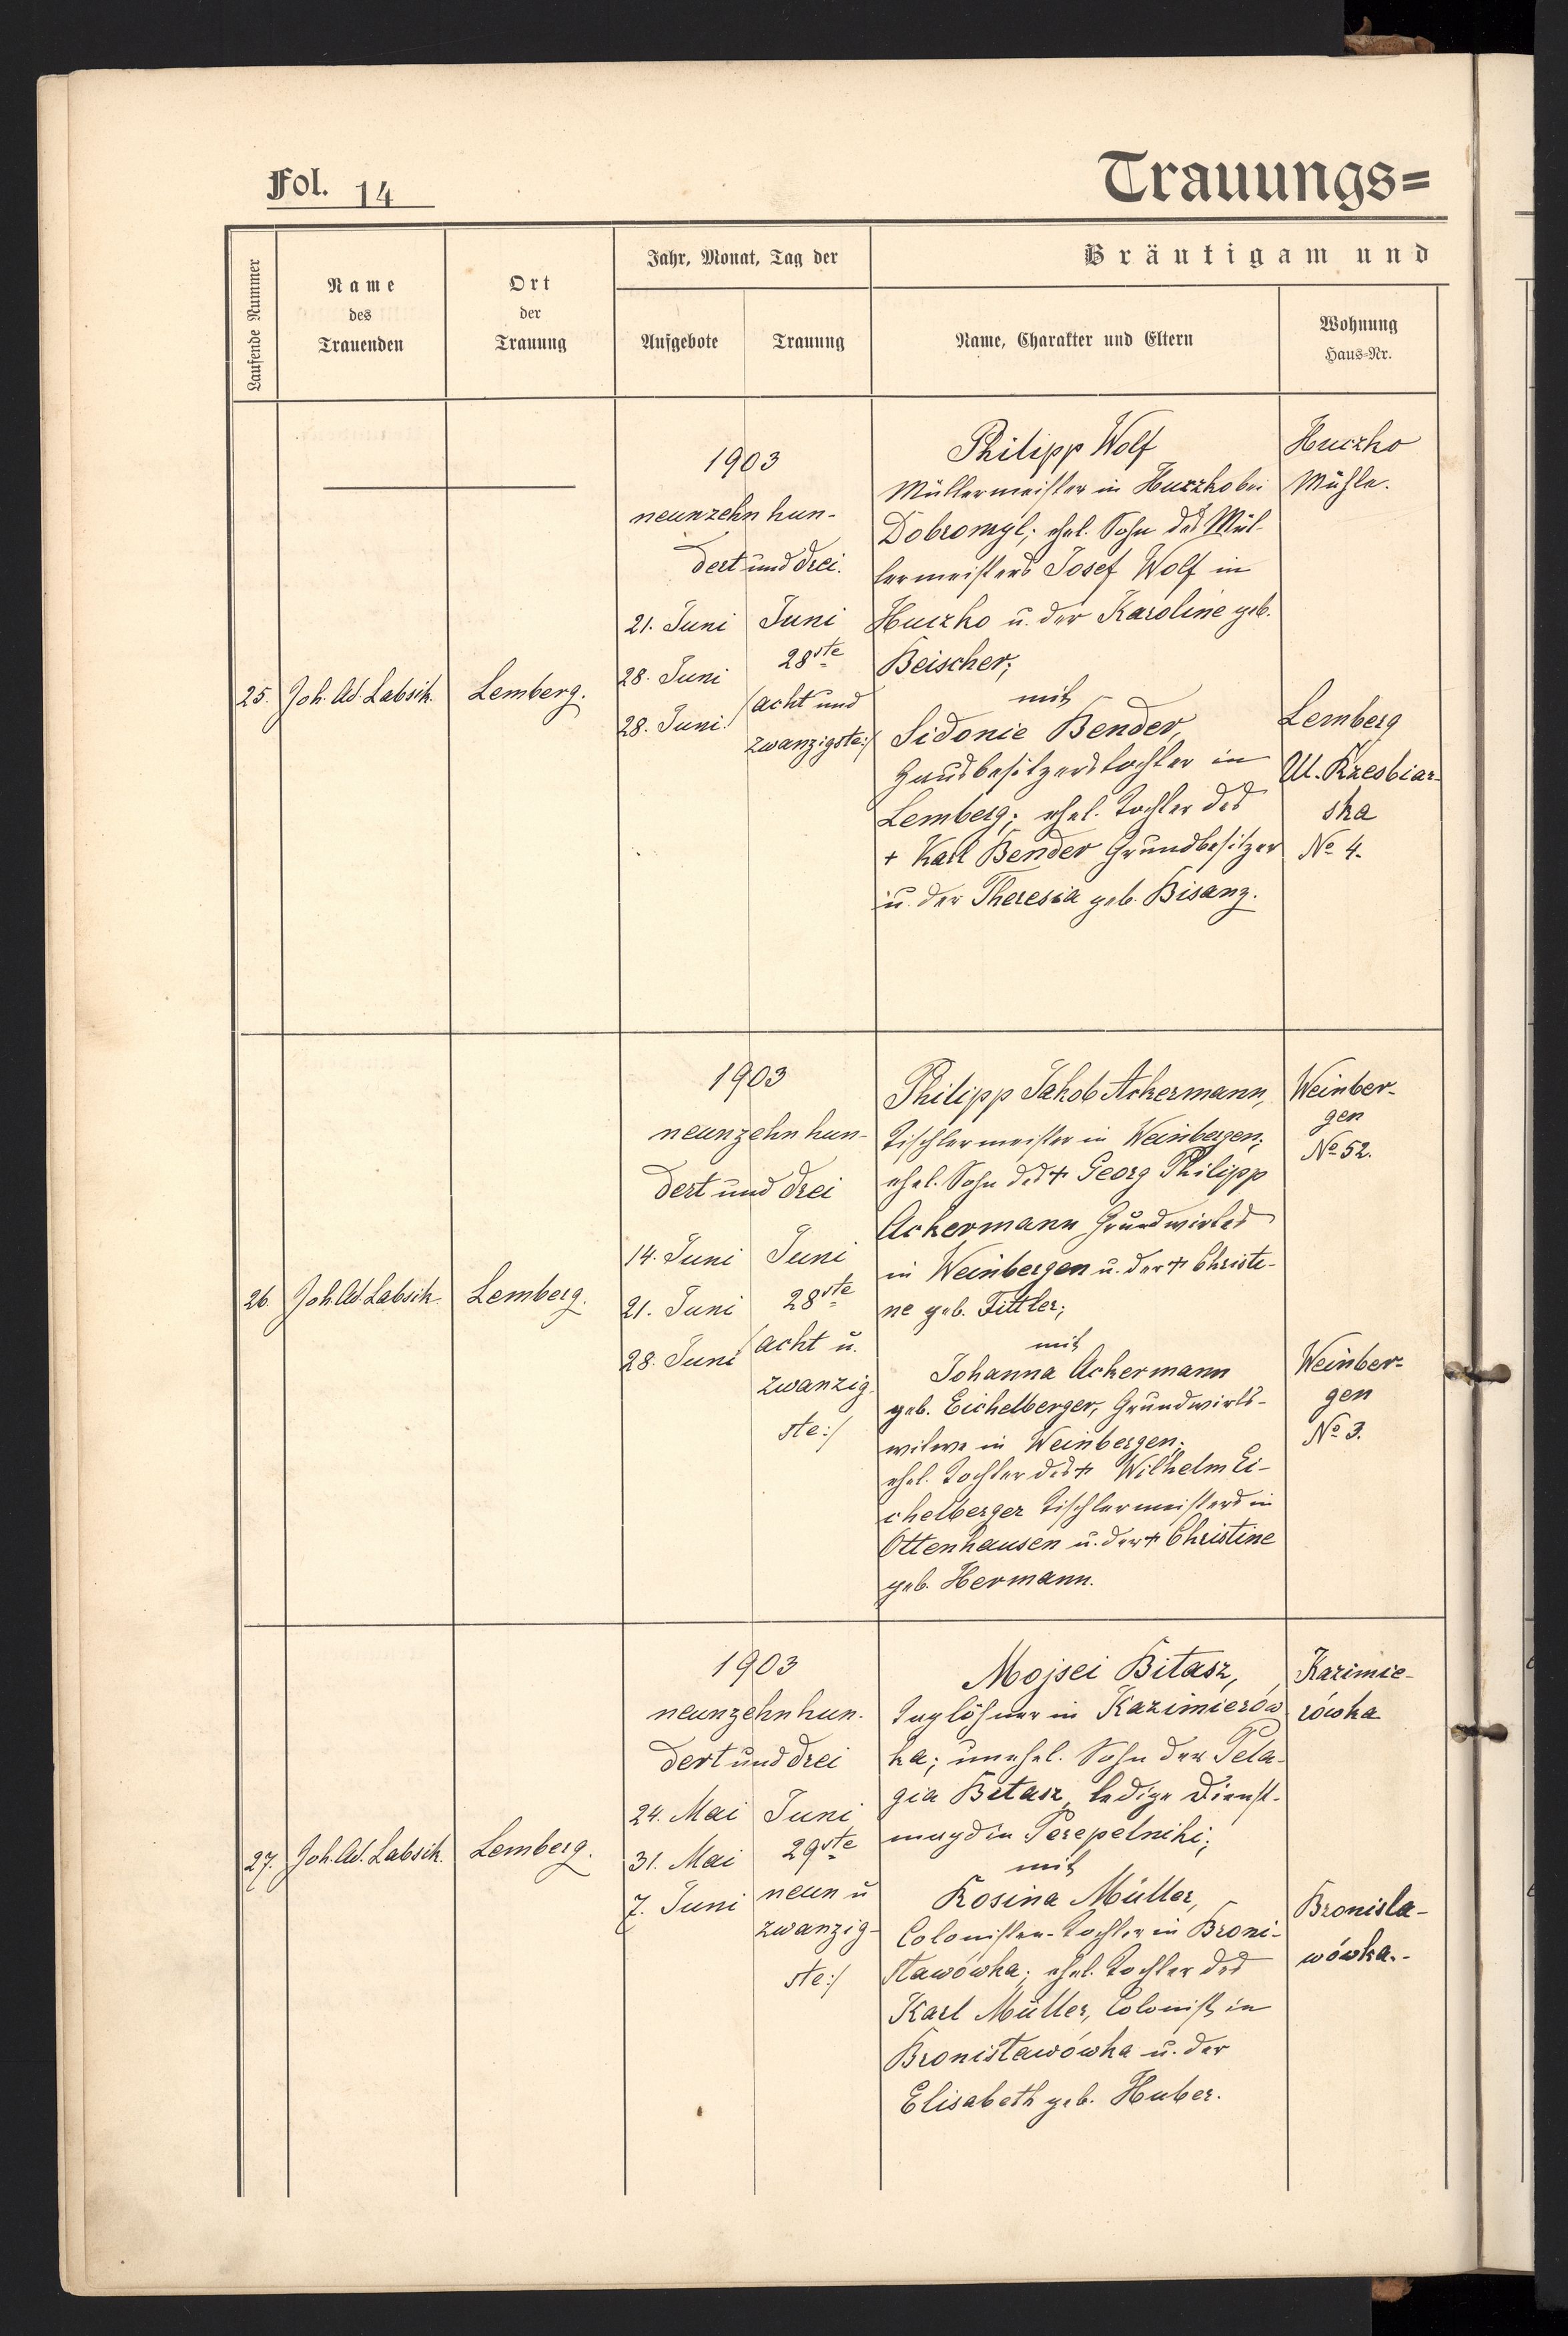 Fol. 14
Trauungs=
Laufende Nummer
Name
des
Trauenden
Ort
der
Trauung
Jahr, Monat, Tag der
Aufgebote
Trauung
Bräutigam und
Name, Charakter und Eltern
Wohnung
Haus-Nr.
25.
Joh. Ad. Labsik.
Lemberg.
1903
neunzehn hun-
dert und drei.
21. Juni
28. Juni
28. Juni.
Juni
28ste
/acht und
zwanzigste:/
Philipp Wolf
Müllermeister in Huczko bei
Dobromyl; ehel. Sohn des Mül-
lermeisters Josef Wolf in
Huczko u. der Karoline geb.
Beischer;
mit
Sidonie Bender,
Hausbesitzerstochter in
Lemberg; ehel. Tochter des
+ Karl Bender Grundbesitzer
u. der Theresia geb. Bisanz.
Huczko
Mühle.
Lemberg
Ul.
ska
No 4.
26.
Joh. Ad. Labsik.
Lemberg.
1903
neunzehn hun-
dert und drei
14. Juni
21. Juni
28. Juni
Juni
28ste
/acht u.
zwanzig-
ste:/
Philipp Jakob Ackermann,
Tischlermeister in Weinbergen;
ehel. Sohn des + Georg Philipp
Ackermann Grundwirtes
in Weinbergen u. der + Christi-
ne geb. Fittler;
mit
Johanna Ackermann
geb. Eichelberger, Grundwirts-
witwe in Weinbergen;
ehel. Tochter des + Wilhelm Ei-
chelberger Tischlermeisters in
Ottenhausen u. der + Christine
geb. Hermann.
Weinber-
gen
No 52.
Weinber-
gen
No 3.
27.
Joh. Ad. Labsik.
Lemberg.
1903
neunzehn hun-
dert und drei
24. Mai
31. Mai
7. Juni
Juni
29ste
neun u
zwanzig-
ste:/
Mojsei Bitasz,
Taglöhner in Kazimierów
ka; unehel. Sohn der Pela-
gia Bitasz, ledige Dienst-
magd in Perepelniki;
mit
Rosina Müller,
Colonisten-Tochter in Broni-
sławówka; ehel. Tochter des
Karl Müller, Colonist in
Bronisławówka u. der
Elisabeth geb. Huber.
Kazimie-
rówka
Bronisla-
wówka.-